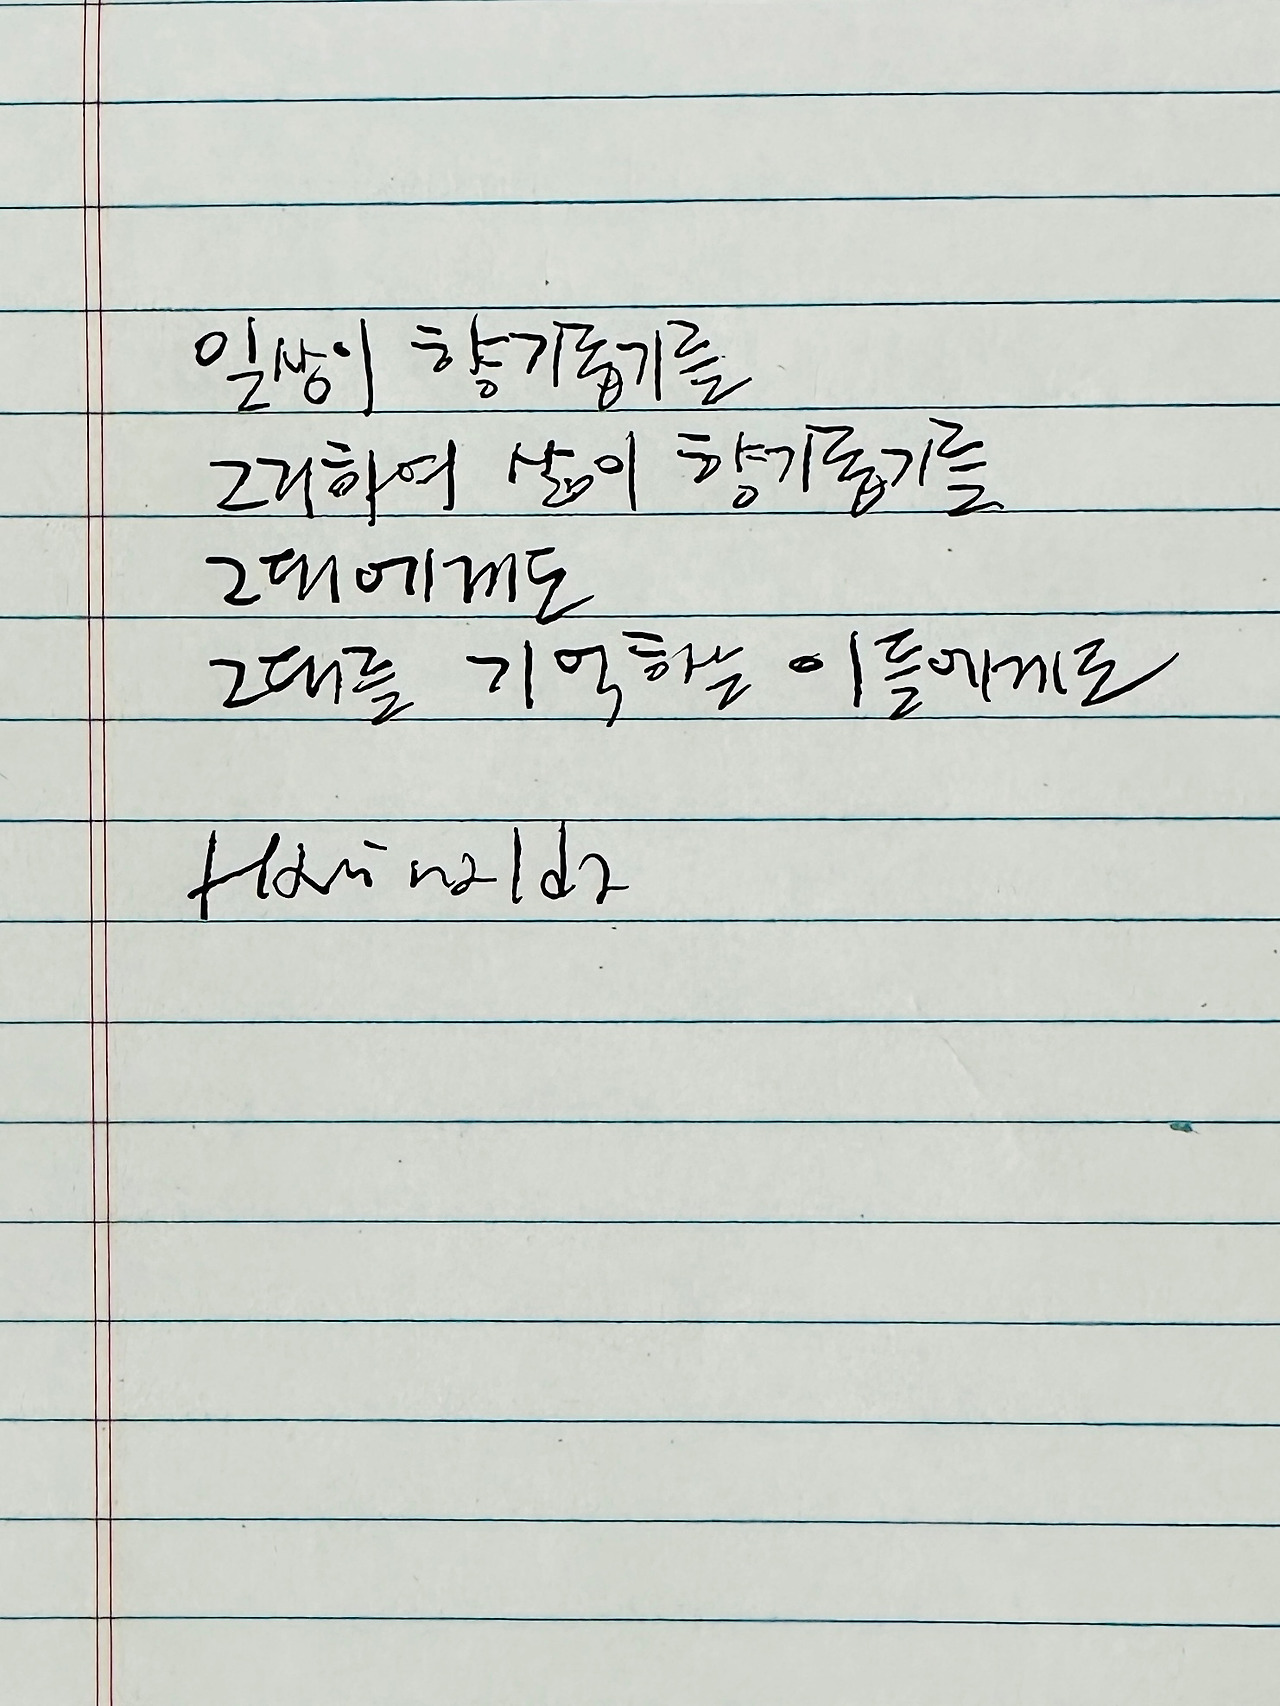 일상이 향기롭기를
그리하여 삶이 향기롭기를
그대에게도
그대를 기억하는 이들에게도